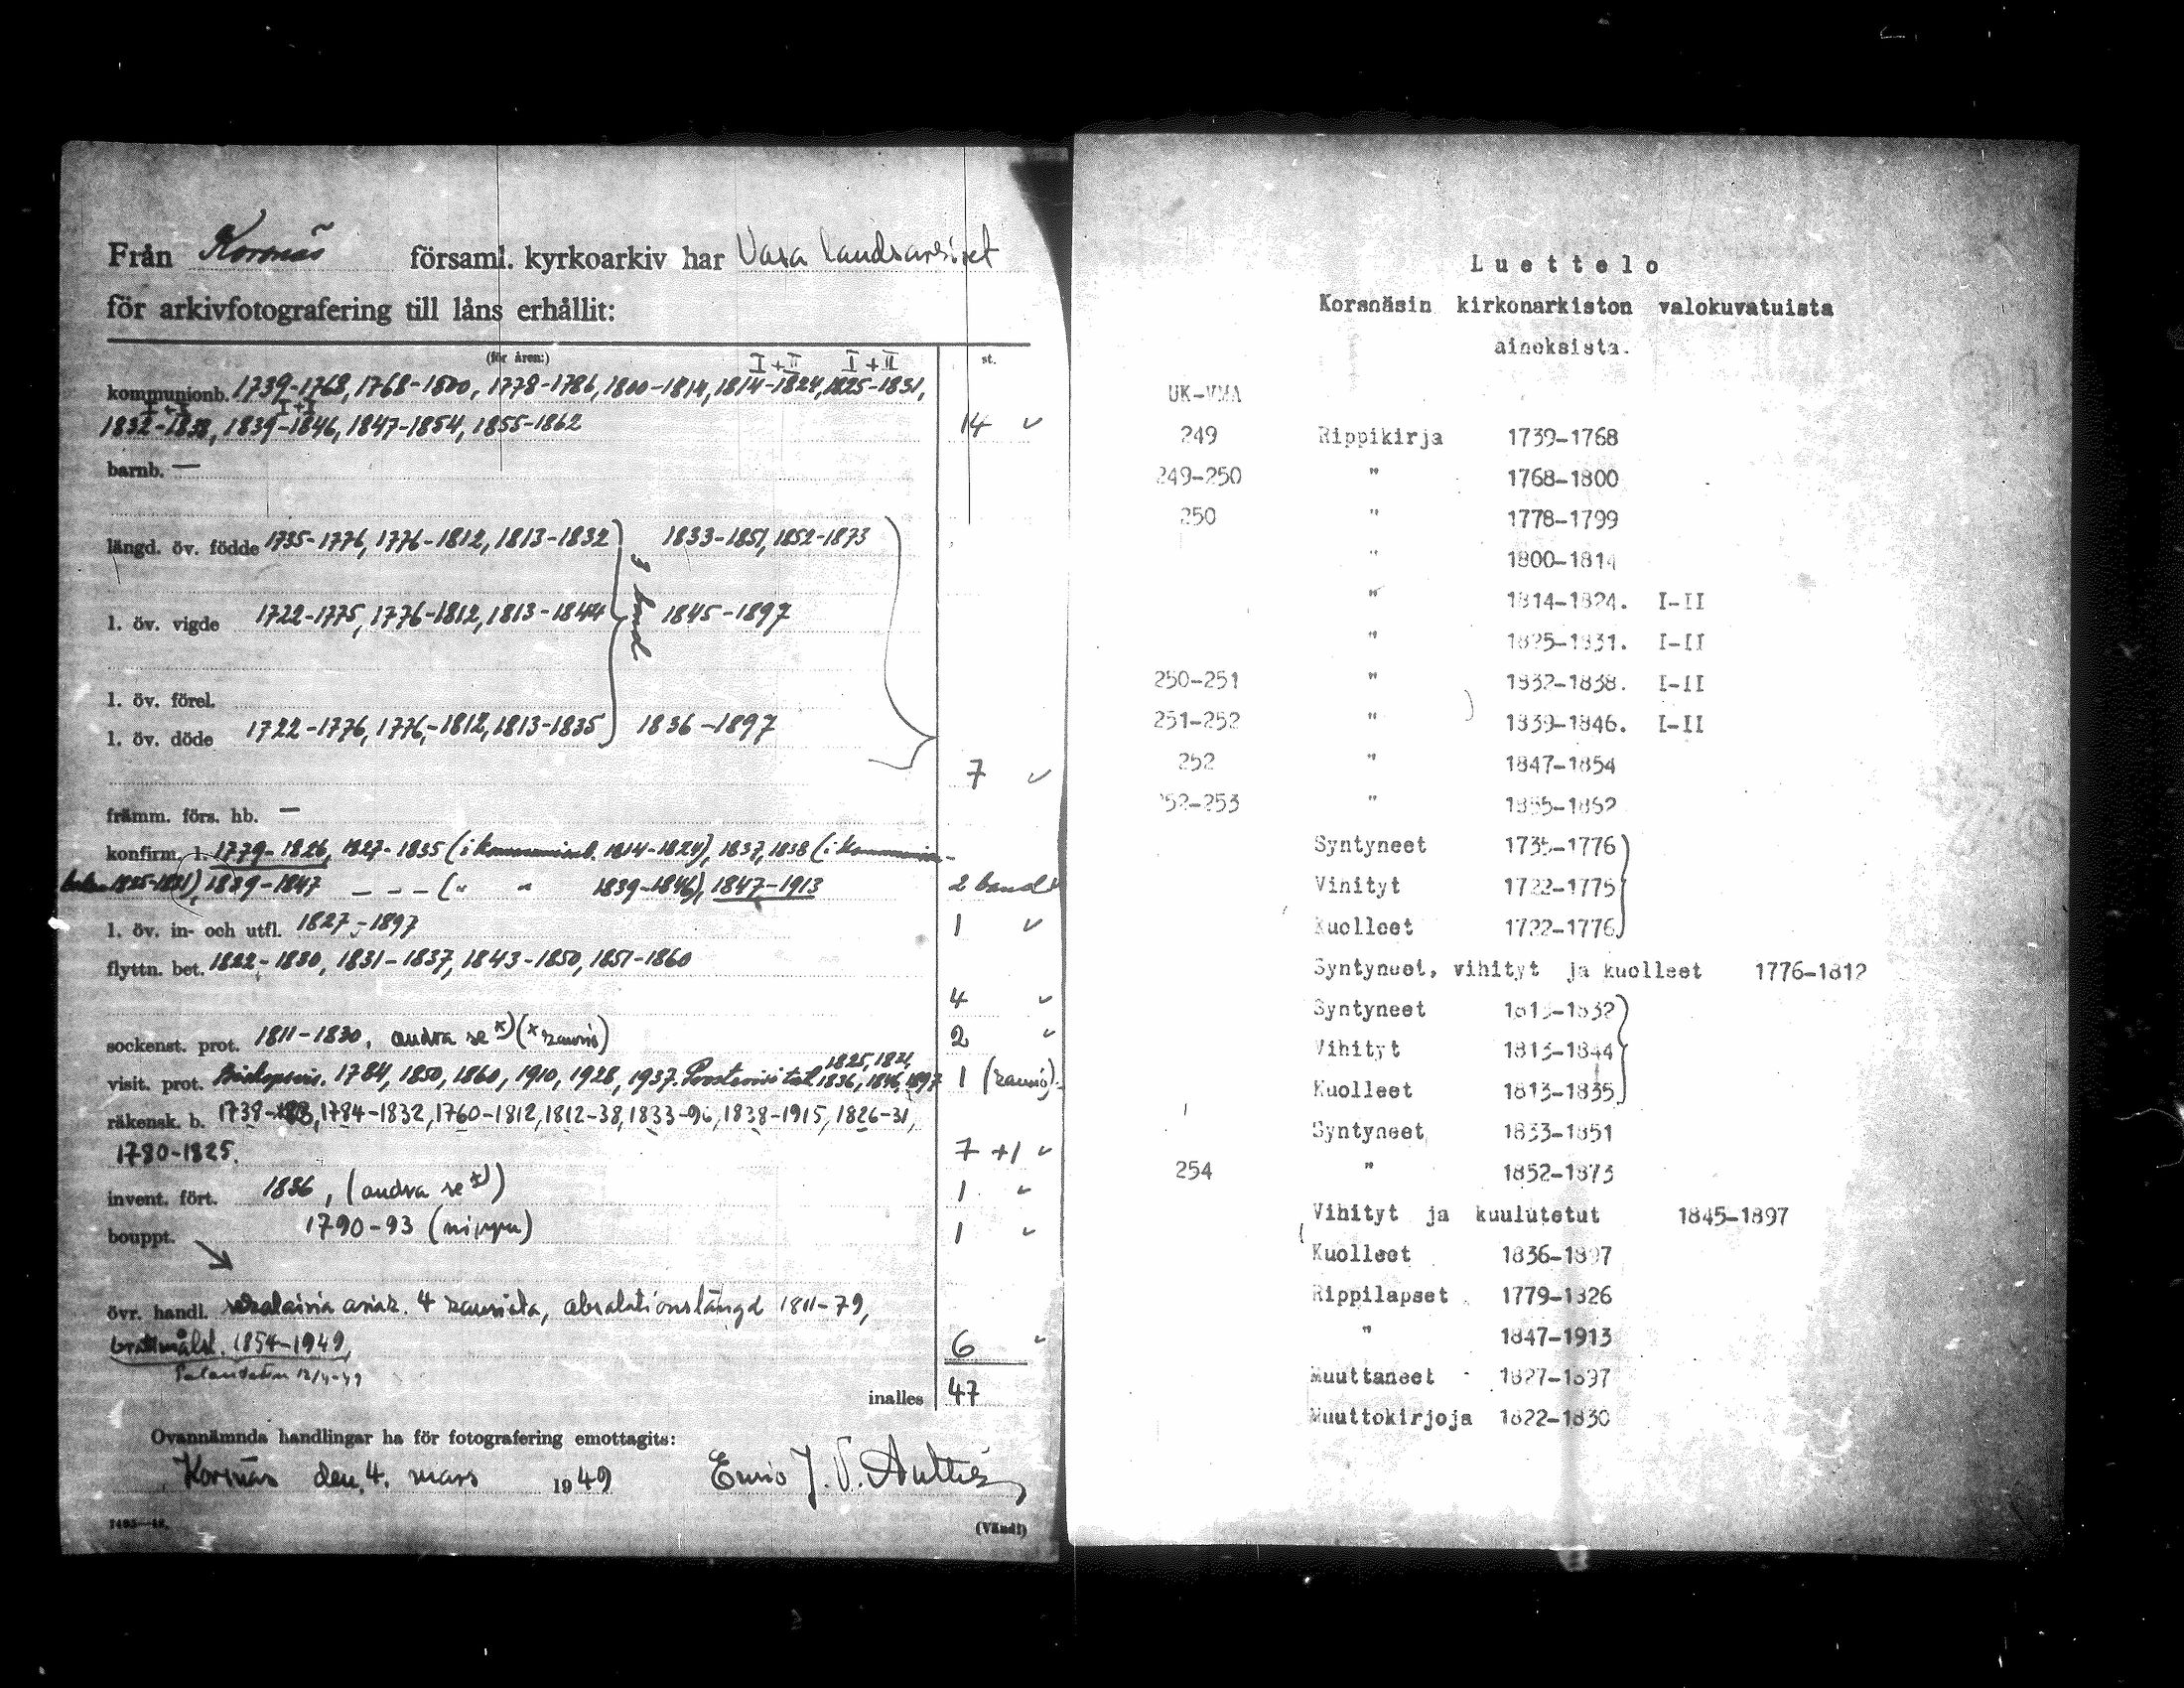 Från Korsnäs församl. kyrkoarkiv har Vasa landsarkivet
för arkivfotografering till låns erhållit:
(för åren:) I+II I+II st.
kommunionb. 1739-1768, 1768-1800, 1778-1786, 1800-1814, 1814-1824, 1825-1831,
I+II I+II
1832-1838, 1839-1846, 1847-1854, 1855-1862 14 ✓
barnb. —
längd. öv. födde 1735-1776, 1776-1812, 1813-1832 1833-1851, 1852-1873
3 band
l. öv. vigde 1722-1775, 1776-1812, 1813-1844 1845-1897
l. öv. förel.
l. öv. döde 1722-1776, 1776-1812, 1813-1835 1836-1897
7 ✓
främm. förs. hb. —
konfirm. l. 1779-1826, 1827-1835 (i kommunionb. 1814-1824), 1837, 1838 (i
1825-1831), 1839-1847 — — — (" " 1839-1846), 1847-1913 2 band
l. öv. in- och utfl. 1827-1897 1 ✓
flyttn. bet. 1822-1830, 1831-1837, 1843-1850, 1851-1860
4 ✓
sockenst. prot. 1811-1830, andra se x) (x kansio) 2 ✓
1825, 1824
visit. prot. Biskopsvis. 1784, 1850, 1860, 1910, 1928, 1937. 1836, 1846, 1897 1 (kansio)
räkensk. b. 1738- 1784-1832, 1760-1812, 1812-38, 1833-96, 1838-1915, 1826-31,
1780-1825. 7 +1 ✓
invent. fört. 1836, (andra se x)) 1 ✓
bouppt. 1790-93 (nippu) 1 ✓
övr. handl. sekalaisia asiak. 4 kansiota, absolutionslängd 1811-79,
1854-1949, 6 ✓
12/4-49
inalles 47
Ovannämnda handlingar ha för fotografering emottagits:
Korsnäs den 4. mars 1949
(Vänd!)
Luettelo
Korsnäsin kirkonarkiston valokuvatuista
aineksista.
UK-VMA
249 Rippikirja 1739-1768
249-250 " 1768-1800
250 " 1778-1799
" 1800-1814
" 1814-1824. I-II
" 1825-1831. I-II
250-251 " 1832-1838. I-II
251-252 " 1839-1846. I-II
252 " 1847-1854
252-253 " 1855-1862
Syntyneet 1735-1776
Vihityt 1722-1775
Kuolleet 1722-1776
Syntyneet, vihityt ja kuolleet 1776-1812
Syntyneet 1813-1832
Vihityt 1813-1844
Kuolleet 1813-1835
Syntyneet 1833-1851
254 " 1852-1873
Vihityt ja kuulutetut 1845-1897
Kuolleet 1836-1897
Rippilapset 1779-1826
" 1847-1913
Muuttaneet 1827-1897
Muuttokirjoja 1822-1830